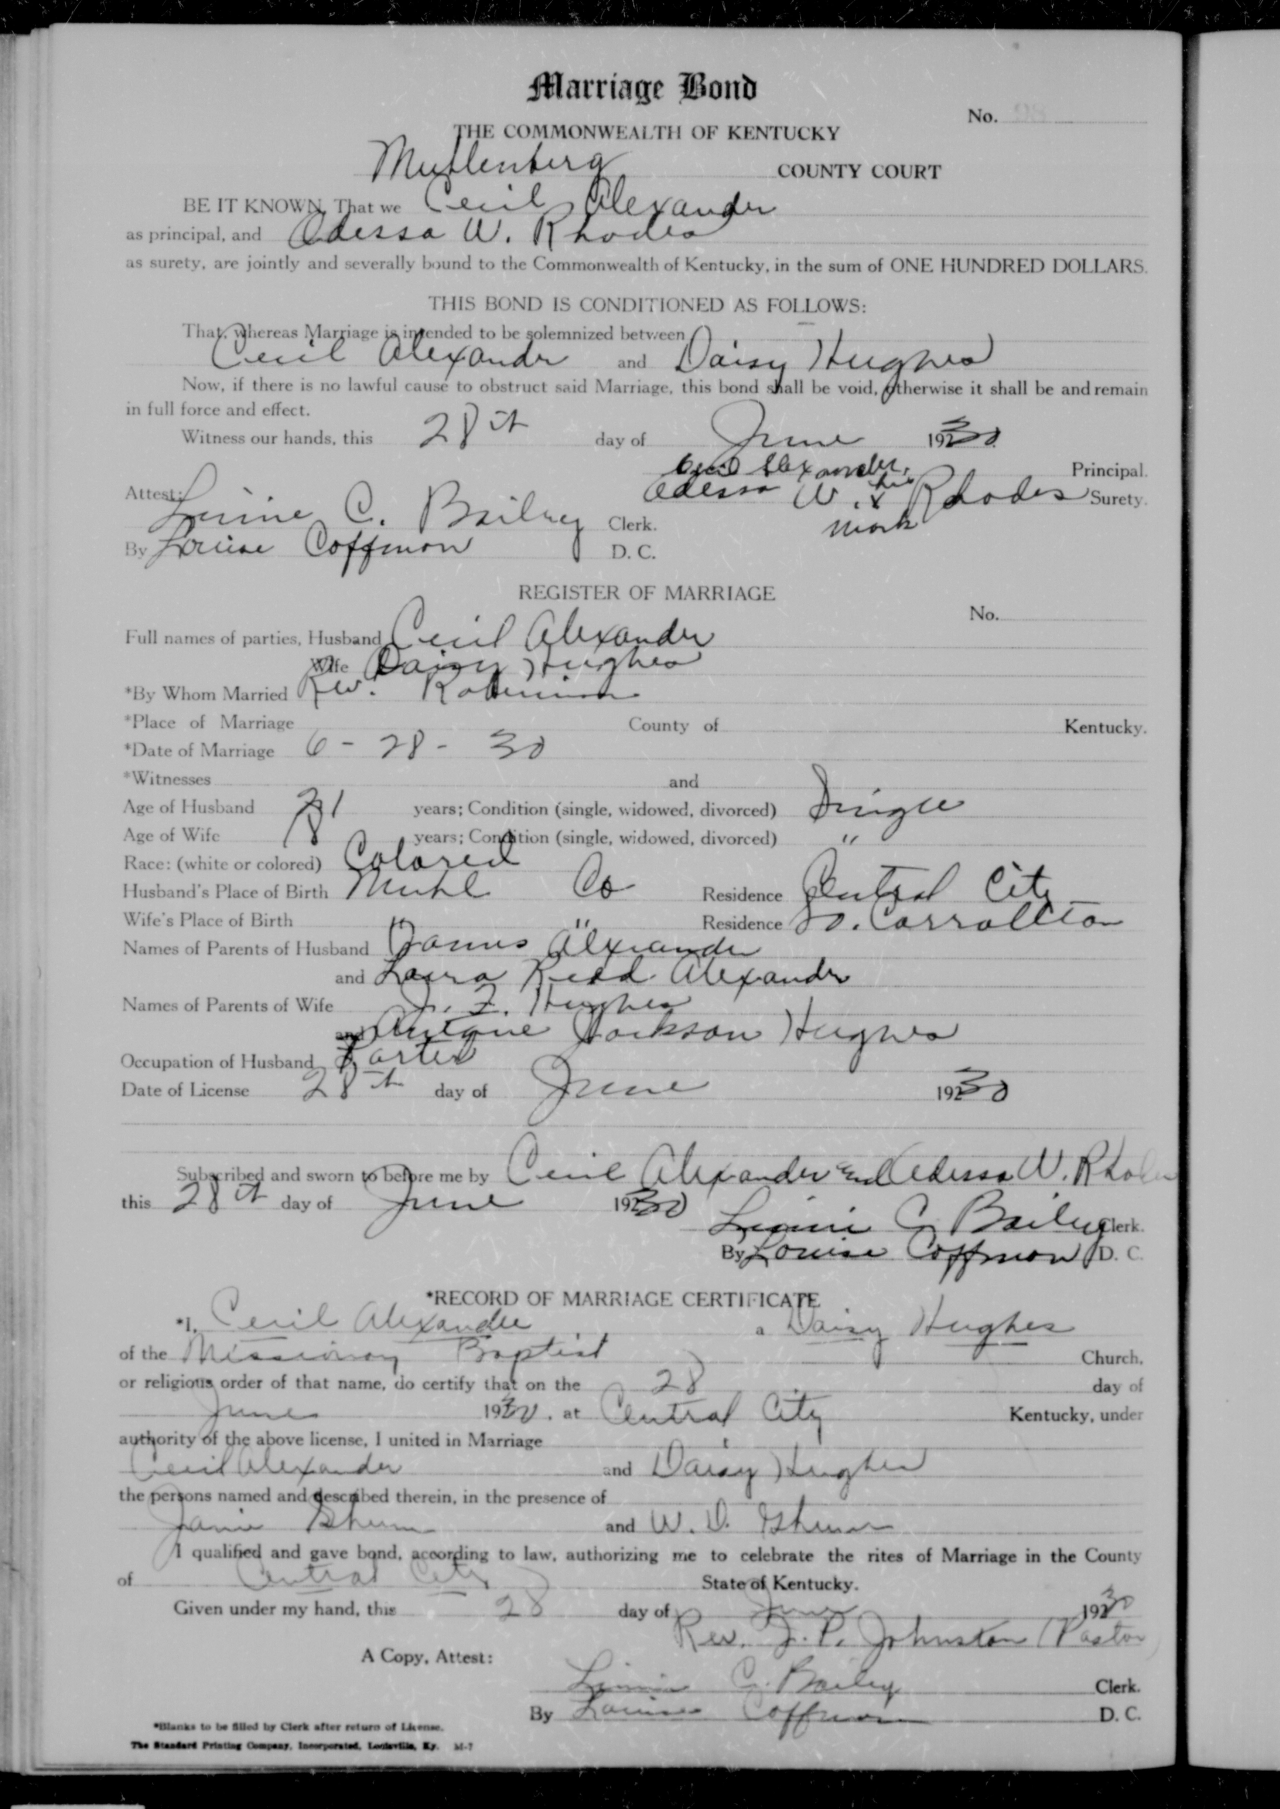 Marriage Bond
No. 98
THE COMMONWEALTH OF KENTUCKY
Muhlenberg COUNTY COURT
BE IT KNOWN, That we Cecil Alexander
as principal, and Odessa W. Rhodes
as surety, are jointly and severally bound to the Commonwealth of Kentucky, in the sum of ONE HUNDRED DOLLARS.
THIS BOND IS CONDITIONED AS FOLLOWS:
That, whereas Marriage is intended to be solemnized between
Cecil Alexander and Daisy Hughes
Now, if there is no lawful cause to obstruct said Marriage, this bond shall be void, otherwise it shall be and remain
in full force and effect.
Witness our hands, this 28th day of June 1930
Cecil Alexander, Principal.
Attest: Odessa W. his x Rhodes Surety.
mark
C. Bailey Clerk.
By Louise Coffman D. C.
REGISTER OF MARRIAGE
No.
Full names of parties, Husband Cecil Alexander
Wife Daisy Hughes
*By Whom Married Rev. Robinson
*Place of Marriage County of Kentucky.
*Date of Marriage 6 - 28 - 30
*Witnesses and
Age of Husband 21 years; Condition (single, widowed, divorced) Single
Age of Wife 18 years; Condition (single, widowed, divorced) "
Race: (white or colored) Colored
Husband's Place of Birth Muhl Co Residence Central City
Wife's Place of Birth " " Residence So. Carrollton
Names of Parents of Husband Alexander
and Laura Redd Alexander
Names of Parents of Wife J. F. Hughes
and Jackson Hughes
Occupation of Husband Porter
Date of License 28th day of June 1930
Subscribed and sworn to before me by Cecil Alexander and Odessa W. Rhodes
this 28th day of June 1930
C. Bailey Clerk.
By Louise Coffman D. C.
*RECORD OF MARRIAGE CERTIFICATE
*I, Cecil Alexander a Daisy Hughes
of the Missionary Baptist Church,
or religious order of that name, do certify that on the 28 day of
June 1930, at Central City Kentucky, under
authority of the above license, I united in Marriage
Cecil Alexander and Daisy Hughes
the persons named and described therein, in the presence of
Janie and W. D.
I qualified and gave bond, according to law, authorizing me to celebrate the rites of Marriage in the County
of Central City State of Kentucky.
Given under my hand, this 28 day of June 1930
Rev. J. P. Johnston (Pastor)
A Copy, Attest:
C. Bailey Clerk.
By Louise Coffman D. C.
*Blanks to be filled by Clerk after return of License.
The Standard Printing Company, Incorporated, Louisville, Ky. M-7